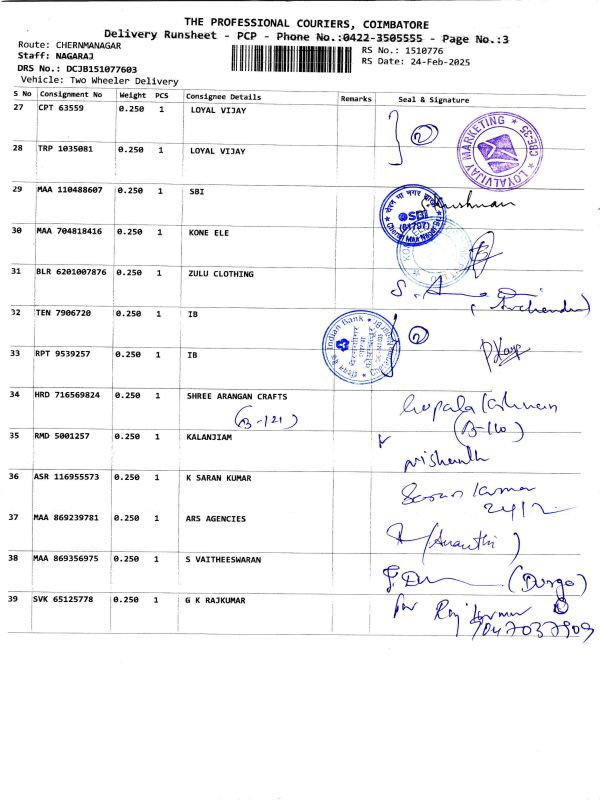 THE PROFESSIONAL COURIERS, COIMBATORE
Delivery Runsheet - PCP - Phone No.:0422-3505555 - Page No.:3
Route: CHERNMANAGAR RS No.: 1510776
Staff: NAGARAJ RS Date: 24-Feb-2025
DRS No.: DCJB151077603
Vehicle: Two Wheeler Delivery
S No Consignment No Weight PCS Consignee Details Remarks Seal & Signature
27 CPT 63559 0.250 1 LOYAL VIJAY
2
LOYALVIJAY MARKETING * CBE-35 *
28 TRP 1035081 0.250 1 LOYAL VIJAY
29 MAA 110488607 0.250 1 SBI
SBI
30 MAA 704818416 0.250 1 KONE ELE
31 BLR 6201007876 0.250 1 ZULU CLOTHING
32 TEN 7906720 0.250 1 IB
Indian Bank
2
33 RPT 9539257 0.250 1 IB
34 HRD 716569824 0.250 1 SHREE ARANGAN CRAFTS
(B-121)
(B-110)
35 RMD 5001257 0.250 1 KALANJIAM
36 ASR 116955573 0.250 1 K SARAN KUMAR
Saran Kumar
24/2
37 MAA 869239781 0.250 1 ARS AGENCIES
(Ananthi)
38 MAA 869356975 0.250 1 S VAITHEESWARAN
(Durga)
39 SVK 65125778 0.250 1 G K RAJKUMAR
for Raj Kumar